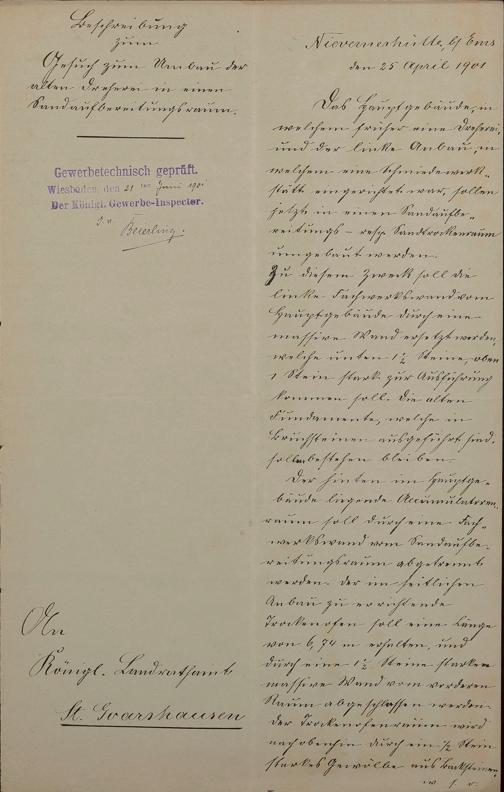 Beschreibung
zum
Gesuch zum Umbau der
alten Dreherei in einen
Sandaufbereitungsraum.
Gewerbetechnisch geprüft.
Wiesbaden, den 21 ten Juni 1901
Der Königl. Gewerbe-Inspector.
Beierling.
An
Königl. Landrathsamt
St. Goarshausen
Nievernerhütte, b/ Ems
den 25 April 1901
Das Hauptgebäude, in
welchem früher eine Dreherei,
und der linke Anbau, in
welchem eine Schmiedewerk-
stätte eingerichtet war, sollen
jetzt in einen Sandaufbe-
reitungs- resp. Sandtrockenraum
umgebaut werden.
Zu diesem Zweck soll die
linke Fachwerkswand vom
Hauptgebäude durch eine
massive Wand ersetzt werden,
welche unten 1½ Steine, oben
1 Stein stark zur Ausführung
kommen soll. Die alten
Fundamente, welche in
Bruchsteinen ausgeführt sind,
sollen bestehen bleiben.
Der hinten im Hauptge-
bäude liegende Accumulatoren-
raum soll durch eine Fach-
werkswand vom Sandaufbe-
reitungsraum abgetrennt
werden. Der im seitlichen
Anbau zu errichtende
Trockenofen soll eine Länge
von 6,74 m erhalten, und
durch eine 1½ Steine starken
massive Wand vom vorderen
Raum abgeschlossen werden.
Der Trockenofenraum wird
nach obenhin durch ein ½ Stein
starkes Gewölbe aus Backsteinen